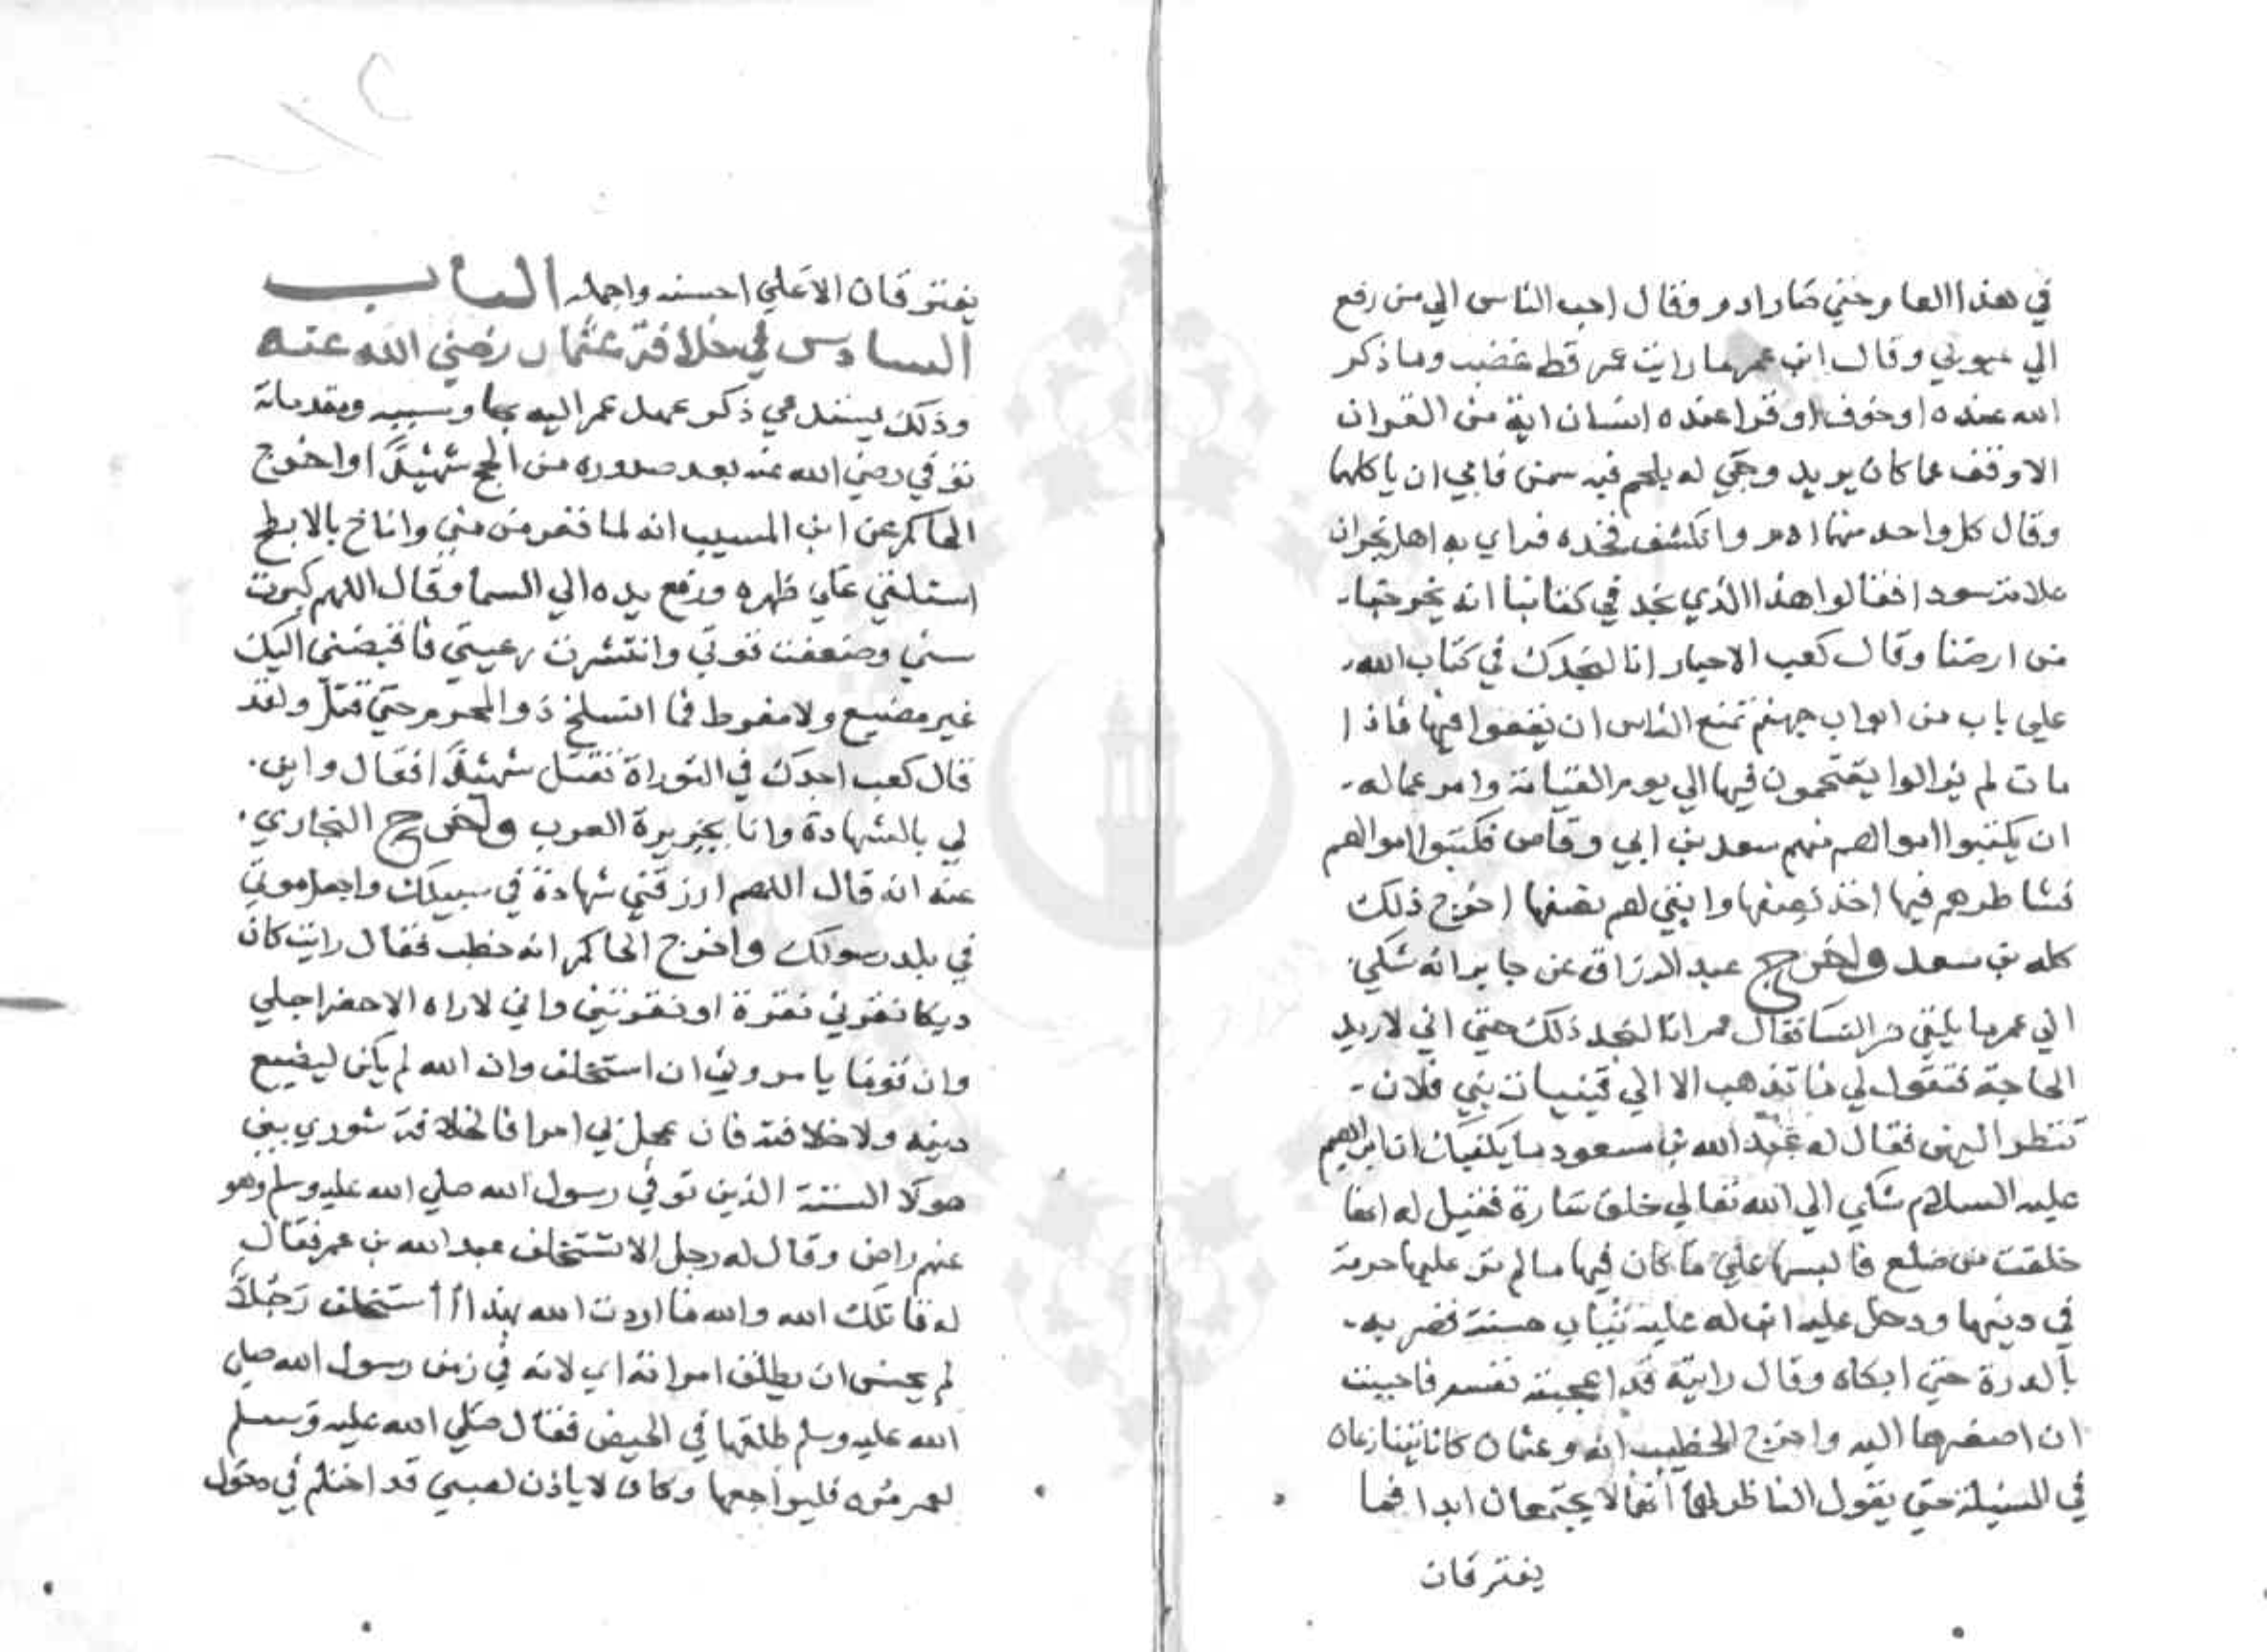 في هذا العام حتي صار ادم وقال احب الناس الي من رفع
الي عيوبي وقال ابن عمر ما رايت عمر قط غضب وما ذكر
الله عنده او خوف او قرا عنده انسان اية من القران
الا وقف عما كان يريد وجي له بلحم فيه سمن فابي ان ياكلهما
وقال كل واحد منهما ادم وانكشف فخذه فراي به اهل نجران
علامة سودا فقالوا هذا الذي نجد في كتابنا انه يخرجنا
من ارضنا وقال كعب الاحبار انا لنجدك في كتاب الله
علي باب من ابواب جهنم تمنع الناس ان يقعوا فيها فاذا
مات لم يزالوا يقتحمون فيها الي يوم القيامة وامر عماله
ان يكتبوا اموالهم منهم سعد بن ابي وقاص فكتبوا اموالهم
فشاطرهم فيها اخذ نصفها وابقي لهم نصفها اخرج ذلك
كله بن سعد واخرج عبد الرزاق عن جابر انه شكي
الي عمر ما يلقي من النسا فقال عمر انا لنجد ذلك حتي اني لاريد
الحاجة فتقول لي ما تذهب الا الي فتيات بني فلان
تنظر اليهن فقال له عبد الله بن مسعود ما يكفيك ان ابراهيم
عليه السلام شكي الي الله تعالي خلق سارة فقيل له انها
خلقت من ضلع فالبسها علي ما كان فيها ما لم تر عليها حرمة
في دينها ودخل عليه ابن له عليه ثياب حسنة فضربه
بالدرة حتي ابكاه وقال رايته قد اعجبته نفسه فاحببت
ان اصغرها اليه واخرج الخطيب انه وعثمان كانا يتنازعان
في المسيلة حتي يقول الناظر اليهما انهما لا يجتمعان ابدا فما
يفترقان
يفترقان الا علي احسنه واجمله الباب
السادس في خلافة عثمان رضي الله عنه
وذلك يستدعي ذكر عهد عمر اليه بها وسببه ومقدماته
توفي رضي الله عنه بعد صدوره من الحج شهيدًا اواخرج
الحاكم عن ابن المسيب انه لما نفر من مني واناخ بالابطح
استلقي علي ظهره ورفع يده الي السما وقال اللهم كبرت
سني وضعفت قوتي وانتشرت رعيتي فاقبضني اليك
غير مضيع ولا مفرط فما انسلخ ذو الحجة حتي قتل ولقد
قال كعب اجدك في التوراة تقتل شهيدًا فقال واين
لي بالشهادة وانا بجزيرة العرب واخرج البخاري
عنه انه قال اللهم ارزقني شهادة في سبيلك واجعل موتي
في بلد رسولك واخرج الحاكم انه خطب فقال رايت كان
ديكا نقرني نقرة او نقرتين واني لا راه الا حضر اجلي
وان قوما يامروني ان استخلف وان الله لم يكن ليضيع
دينه ولا خلافته فان عجل بي امر فالخلافة شوري بين
هولا الستة الذين توفي رسول الله صلي الله عليه وسلم وهو
عنهم راض وقال له رجل الا تستخلف عبد الله بن عمر فقال
له قاتلك الله والله ما اردت الله بهذا أأستخلف رَجُلاً
لم يحسن ان يطلق امراته اي لانه في زمن رسول الله صلي
الله عليه وسلم طلقها في الحيض فقال صلي الله عليه وسلم
لعمر مره فليراجعها وكان لا ياذن لصبي قد احتلم في دخول